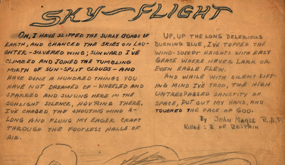 SKY-FLIGHT
OH, I HAVE SLIPPED THE SURLY BONDS OF
EARTH, AND DANCED THE SKIES ON LAUGH-
TER-SILVERED WINGS; SUNWARD I'VE
CLIMBED AND JOINED THE TUMBLING
MIRTH OF SUN-SPLIT CLOUDS - AND
HAVE DONE A HUNDRED THINGS YOU
HAVE NOT DREAMED OF - WHEELED AND
SOARED AND SWUNG HIGH IN THE
SUNLIGHT SILENCE, HOVERING THERE,
I'VE CHASED THE SHOUTING WIND A-
LONG AND FLUNG MY EAGER CRAFT
THROUGH THE FOOTLESS HALLS OF
AIR.
UP, UP THE LONG DELIRIOUS
BURNING BLUE, I'VE TOPPED THE
WIND-SWEPT HEIGHTS WITH EASY
GRACE WHERE NEVER LARK OR
EVEN EAGLE FLEW;
AND WHILE WITH SILENT LIFT-
ING MIND I'VE TROD, THE HIGH
UNTRESPASSED SANCTITY OF
SPACE, PUT OUT MY HAND, AND
TOUCHED THE FACE OF GOD.
By John Magee